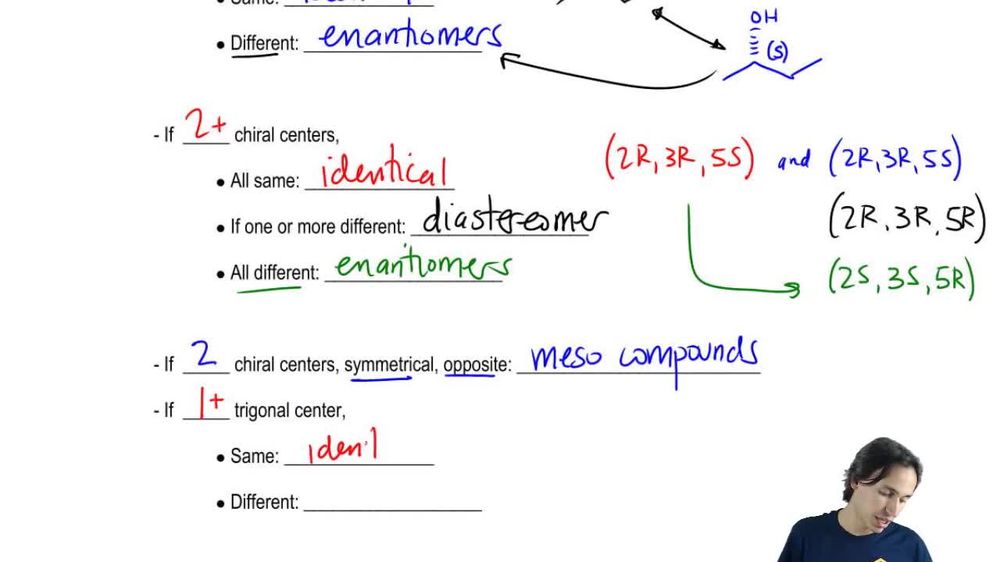 • Different: enantiomers
OH
(S)
- If 2+ chiral centers,
• All same: identical
• If one or more different: diastereomer
• All different: enantiomers
(2R, 3R, 5S) and (2R, 3R, 5S)
(2R, 3R, 5R)
(2S, 3S, 5R)
- If 2 chiral centers, symmetrical, opposite: meso compounds
- If 1+ trigonal center,
• Same: iden'l
• Different: